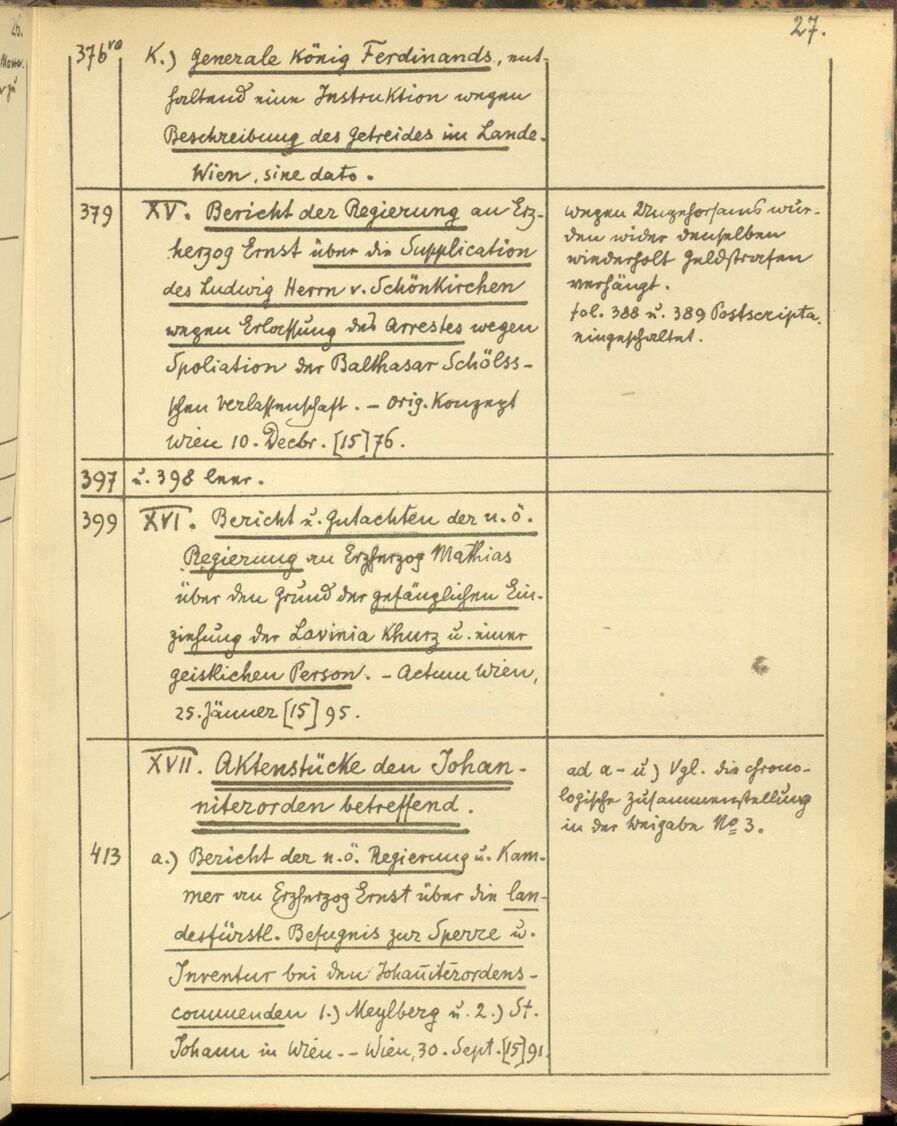 26.
27.
376vo K.) Generale König Ferdinands, ent-
haltend eine Instruktion wegen
Beschreibung des Getreides im Lande.
Wien, sine dato.
379 XV. Bericht der Regierung an Erz-
herzog Ernst über die Supplication
des Ludwig Herrn v. Schönkirchen
wegen Erlassung des Arrestes wegen
Spoliation der Balthasar Schölss-
schen Verlassenschaft. – Orig. Konzept
Wien 10. Decbr. [15]76.
wegen Ungehorsams wur-
den wider denselben
wiederholt Geldstrafen
verhängt.
fol. 388 u. 389 Postscripta
eingeschaltet.
397 u. 398 leer.
399 XVI. Bericht u. Gutachten der n. ö.
Regierung an Erzherzog Mathias
über den Grund der gefänglichen Ein-
ziehung der Lavinia Khurz u. einer
geistlichen Person. – Actum Wien,
25. Jänner [15]95.
XVII. Aktenstücke den Johan-
niterorden betreffend.
ad a – u) Vgl. die chrono-
logische Zusammenstellung
in der Beigabe No 3.
413 a.) Bericht der n. ö. Regierung u. Kam-
mer an Erzherzog Ernst über die lan-
desfürstl. Befugnis zur Sperre u.
Inventur bei den Johaniterordens-
commenden 1.) Meylberg u. 2.) St.
Johann in Wien. – Wien, 30. Sept. [15]91.